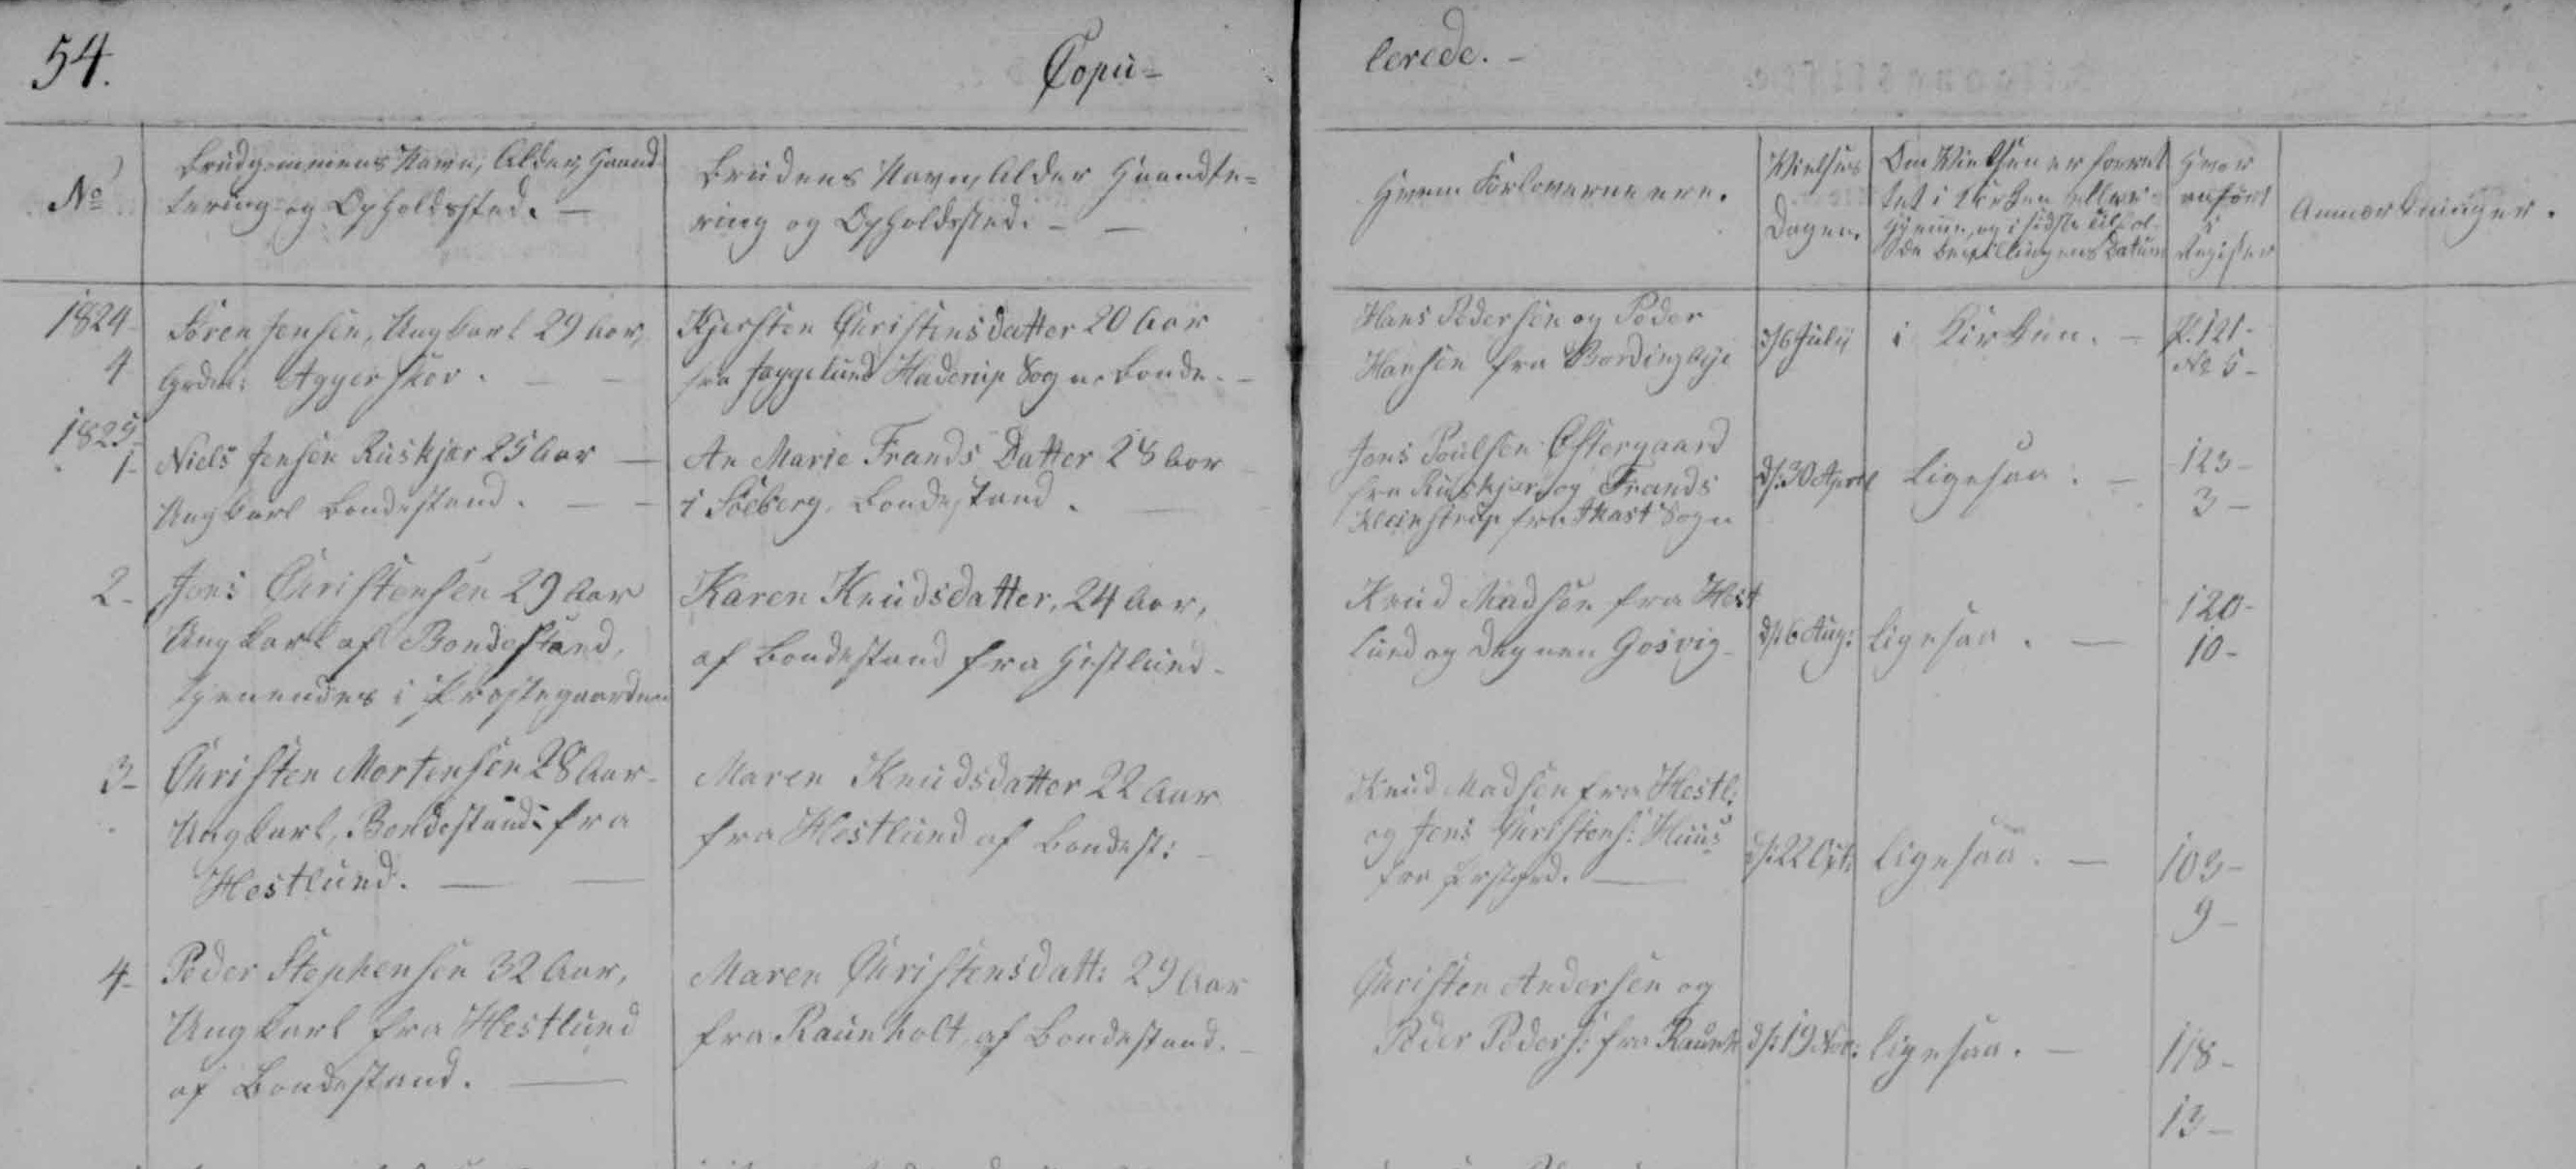 54.
Copu=
lerede. -
No
Brudgommens Navn, Alder, Haand-
tering og Opholdssted. -
Brudens Navn, Alder Haandte=
ring og Opholdssted. - -
Hvem Forloverne ere.
Vielses
Dagen.
Om Vielsen er forret
tet i Kirken eller
hjemme, og i sidste Tilfæl-
de Bevillingens Datum
Hvor
anført
i
Register
Anmærkninger.
1824
4
Søren Jensen, Ungkarl 29 Aar,
Aggerskov. - -
Kjersten Christensdatter 20 Aar
fra Haderup Sogn. Bonde. -
Hans Pedersen og Peder
Hansen fra Bording bye
d/6 July
i Kirken. -
p. 121-
No 5-
1825
1-
Niels Jensen Ruskjær 25 Aar -
Ungkarl Bondestand. - -
An Marie Frands Datter 28 Aar
i Bondestand.
Jens Poulsen Østergaard
fra Ruskjær og Frands
fra Ikast Sogn
d/: 30 April
ligesaa. -
123-
3-
2-
Jens Christensen 29 Aar
Ungkarl af Bondestand,
tjenendes i Præstegaarden
Karen Knudsdatter, 24 Aar,
af Bondestand fra Hestlund-
Knud Madsen fra Hest
lund og Degnen Gosvig-
d/: 6 Aug:
ligesaa. -
120-
10-
3-
Christen Mortensen 28 Aar-
Ungkarl, Bondestand: fra
Hestlund. - -
Maren Knudsdatter 22 Aar
fra Hestlund af Bondest: -
Knud Madsen fra Hestl:
og Jens Christens: Huus
fra Præstgrd. -
d/: 22
ligesaa. -
103-
9-
4-
Peder Stephensen 32 Aar,
Ungkarl fra Hestlund
af Bondestand. -
Maren Christensdatt: 29 Aar
fra Raunholt af Bondestand. -
Christen Andersen og
Peder Peders: fra Raunh
d/: 19 Nov:
ligesaa. -
118-
13-